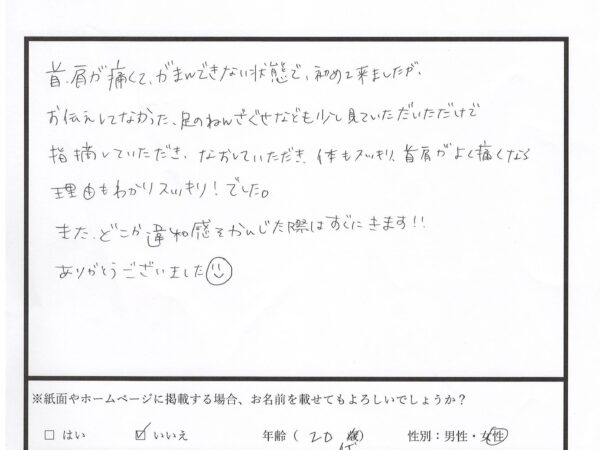 首、肩が痛くて、がまんできない状態で、初めて来ましたが、
お伝えしてなかった、足のねんざぐせなども少し見ていただいただけで
指摘していただき、なおしていただき、体もスッキリ、首肩がよく痛くなる
理由もわかりスッキリ!でした。
また、どこか違和感をかんじた際はすぐにきます!!
ありがとうございました
※紙面やホームページに掲載する場合、お名前を載せてもよろしいでしょうか?
□ はい ☑ いいえ 年齢( 20 代 ) 性別:男性・女性